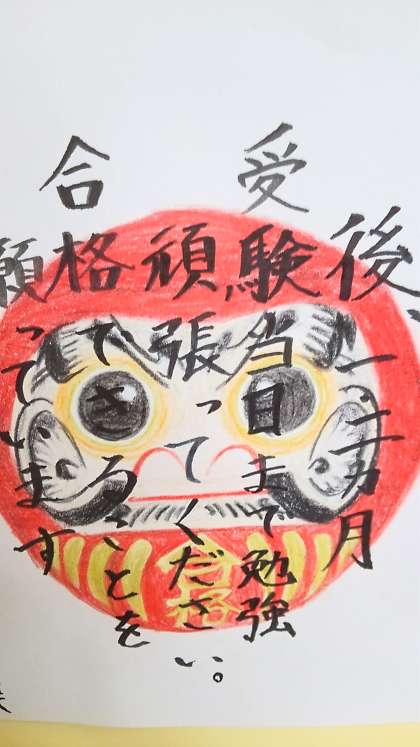 後、一、二ヵ月
受験当日まで勉強
頑張ってください。
合格できることを
願っています
合格